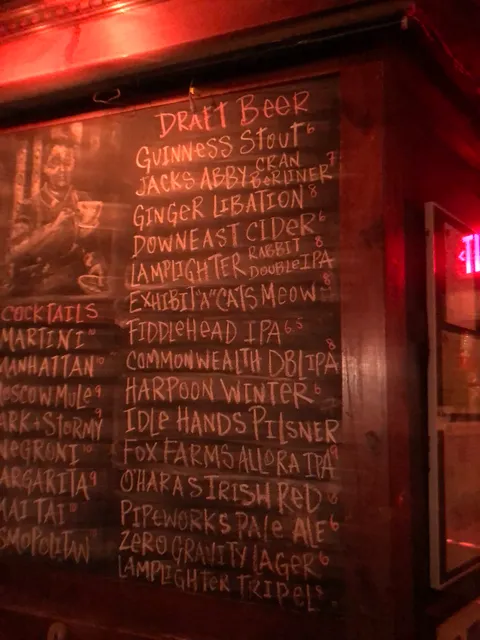 DRAFT BEER
GUINNESS STOUT 6
JACKS ABBY CRAN BERLINER 7
GINGER LIBATION 8
DOWNEAST CIDER 6
LAMPLIGHTER RABBIT DOUBLE IPA 8
EXHIBIT "A" CATS MEOW 8
FIDDLEHEAD IPA 6.5
COMMONWEALTH DBL IPA 8
HARPOON WINTER 6
IDLE HANDS PILSNER
FOX FARMS ALLORA IPA 9
O'HARAS IRISH RED 8
PIPEWORKS PALE ALE 6
ZERO GRAVITY LAGER 6
LAMPLIGHTER TRIPEL 8
COCKTAILS
MARTINI 10
MANHATTAN 10
MOSCOW MULE 9
ARK + STORMY 9
NEGRONI 10
ARGARITA 9
MAI TAI 10
SMOPOLITAN